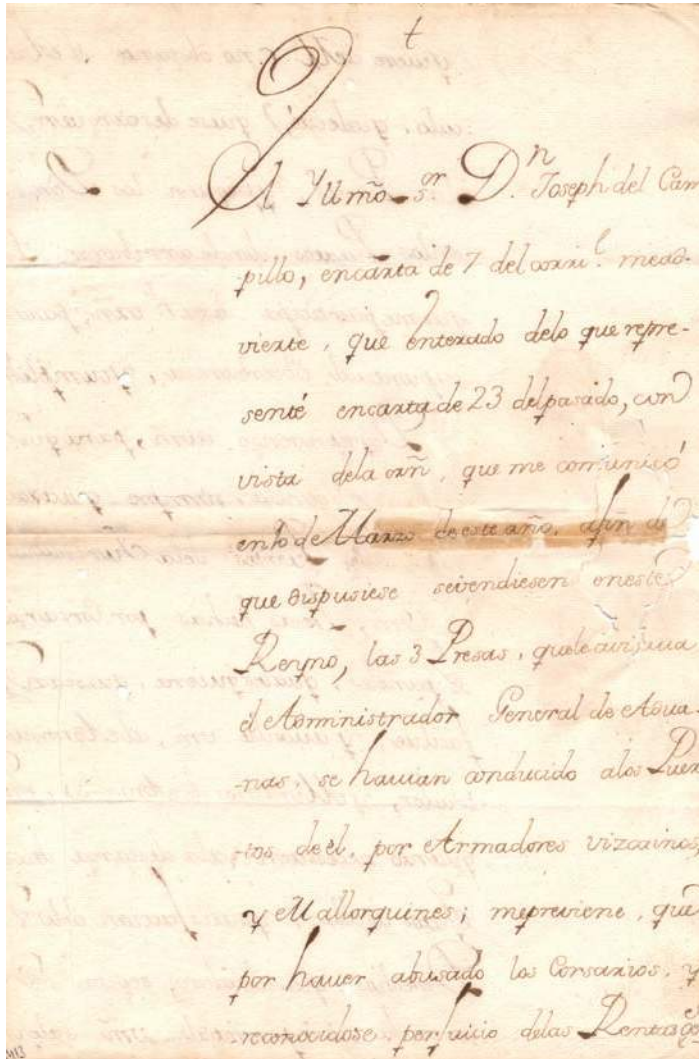 †
El Yllmô sor Dn Joseph del Cam
pillo, encarta de 7 del corrite mead-
vierte, que enterado delo que repre-
senté encarta de 23 delpasado, con
vista dela orñ, que me comunicó
en 10 de Marzo de este año, afin de
que dispusiese sevendiesen eneste
Reyno, las 3 Presas, queleavisava
el Administrador General de Adua-
nas, se havian conducido alos Puer
tos de el, por Armadores vizcainos,
y Mallorquines; mepreviene, que
por haver abusado los Corsarios, y
reconocidose perjuicio delas Rentas